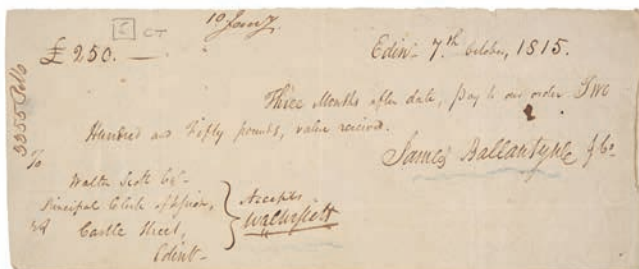 10 Jany
5 CT
£ 250. —
Edinr 7.th October, 1815.
Three Months after date, pay to our order Two
Hundred and Fifty pounds, value received.
James Ballantyne & Co.
To
Walter Scott Esqr
Principal Clerk of Session,
Castle Street,
Edinr
Accepts
Walter Scott